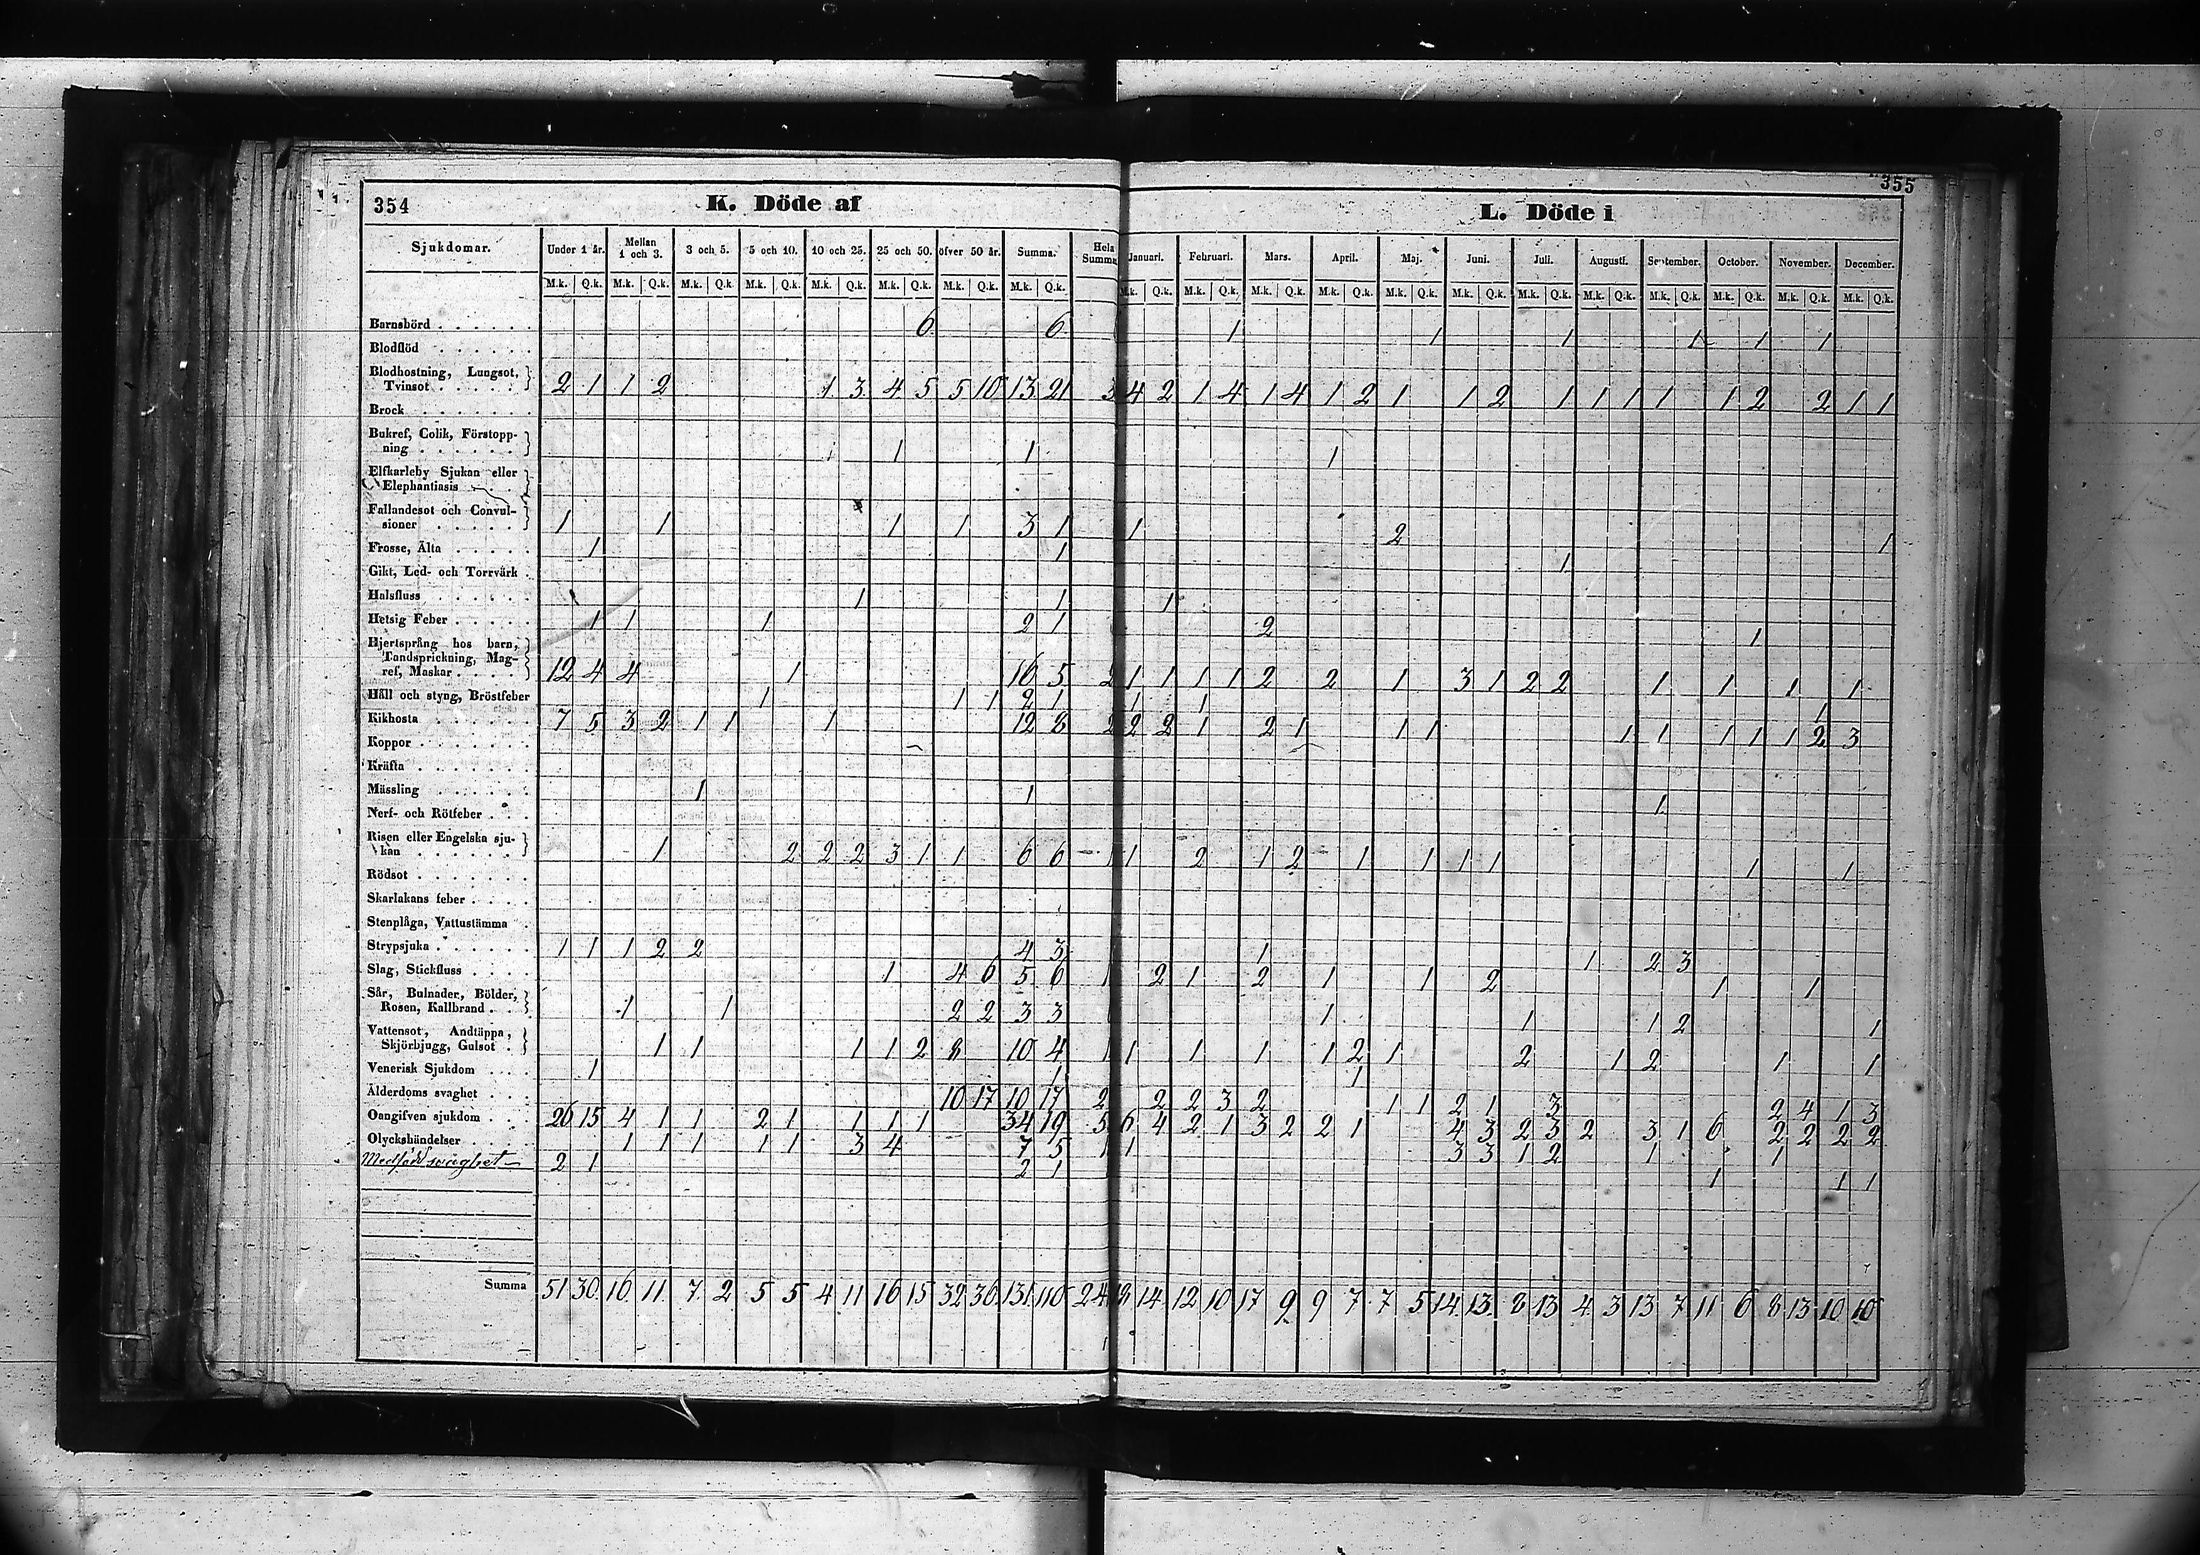 354
K. Döde af
355
L. Döde i
Sjukdomar. Under 1 år. Mellan 1 och 3. 3 och 5. 5 och 10. 10 och 25. 25 och 50. öfver 50 år. Summa. Hela Summa Januari. Februari. Mars. April. Maj. Juni. Juli. Augusti. September. October. November. December.
M.k. Q.k. M.k. Q.k. M.k. Q.k. M.k. Q.k. M.k. Q.k. M.k. Q.k. M.k. Q.k. M.k. Q.k. M.k. Q.k. M.k. Q.k. M.k. Q.k. M.k. Q.k. M.k. Q.k. M.k. Q.k. M.k. Q.k. M.k. Q.k. M.k. Q.k. M.k. Q.k. M.k. Q.k. M.k. Q.k.
Barnsbörd 6 6 1 1 1 1 1 1
Blodflöd
Blodhostning, Lungsot,
Tvinsot 2 1 1 2 1 3 4 5 5 10 13 21 3 4 2 1 4 1 4 1 2 1 1 2 1 1 1 1 1 2 2 1 1
Brock
Bukref, Colik, Förstopp-
ning 1 1 1
Elfkarleby Sjukan eller
Elephantiasis
Fallandesot och Convul-
sioner 1 1 1 1 3 1 1 2 1
Frosse, Älta 1 1 1
Gikt, Led- och Torrvärk
Halsfluss 1 1 1
Hetsig Feber 1 1 1 2 1 2 1
Hjertsprång hos barn,
Tandsprickning, Mag-
ref, Maskar 12 4 4 1 16 5 2 1 1 1 1 2 2 1 3 1 2 2 1 1 1 1
Håll och styng, Bröstfeber 1 1 1 2 1 1 1 1
Kikhosta 7 5 3 2 1 1 1 12 8 2 2 2 1 2 1 1 1 1 1 1 1 1 2 3
Koppor
Kräfta
Mässling 1 1 1
Nerf- och Rötfeber
Risen eller Engelska sju-
kan 1 2 2 2 3 1 1 6 6 1 1 2 1 2 1 1 1 1 1 1
Rödsot
Skarlakans feber
Stenplåga, Vattustämma
Strypsjuka 1 1 1 2 2 4 3 1 1 2 3
Slag, Stickfluss 1 4 6 5 6 1 2 1 2 1 1 2 1 1
Sår, Bulnader, Bölder,
Rosen, Kallbrand 1 1 2 2 3 3 1 1 1 2 1
Vattensot, Andtäppa,
Skjörbjugg, Gulsot 1 1 1 1 2 8 10 4 1 1 1 1 1 2 1 2 1 2 1 1
Venerisk Sjukdom 1 1 1
Ålderdoms svaghet 10 17 10 17 2 2 2 3 2 1 1 2 1 3 2 4 1 3
Oangifven sjukdom 26 15 4 1 1 2 1 1 1 1 34 19 5 6 4 2 1 3 2 2 1 4 3 2 3 2 3 1 6 2 2 2 2
Olyckshändelser 1 1 1 1 1 3 4 7 5 1 1 3 3 1 2 1 1
Medfödd svaghet 2 1 2 1 1 1 1
Summa 51 30 16 11 7 2 5 5 4 11 16 15 32 36 131 110 24 18 14 12 10 17 9 9 7 7 5 14 13 8 13 4 3 13 7 11 6 8 13 10 10